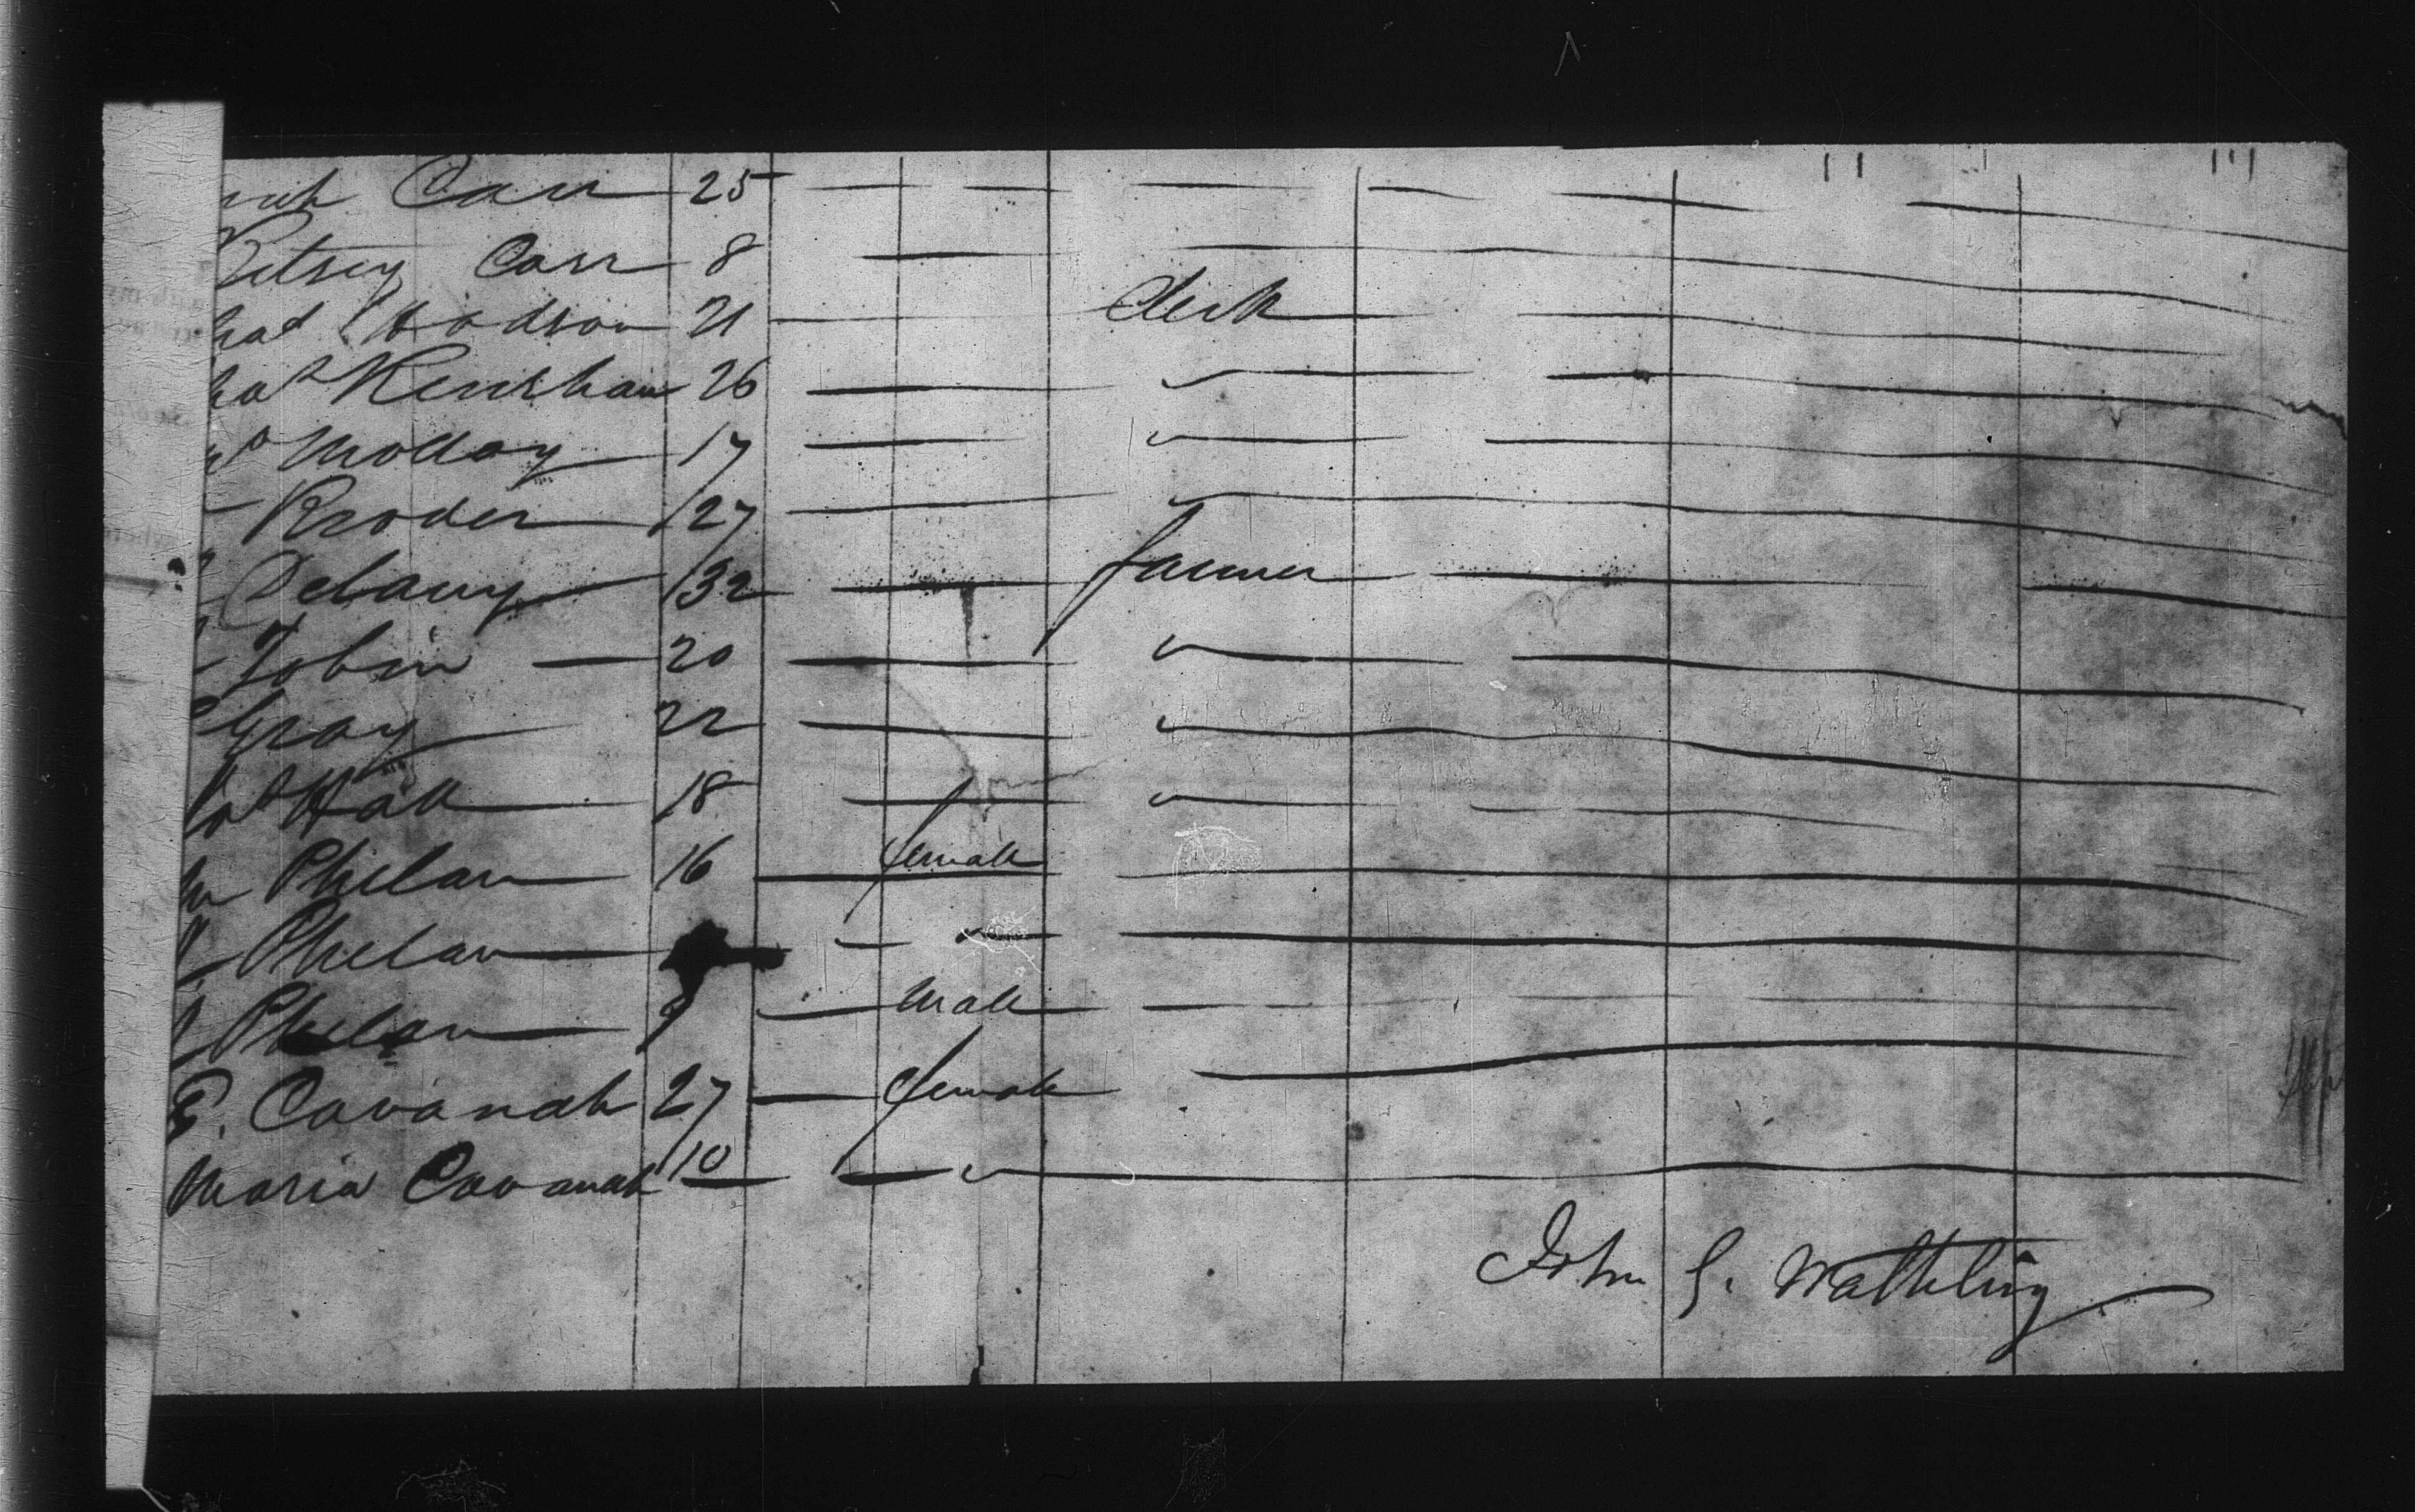 Carr 25
Betsey Carr 8
Hodson 21 Clerk
Renshaw 26 "
Molloy 17 "
Broder 27 "
Delany 32 farmer
Tobin 20 "
Gray 22 "
Hall 18 "
Phelan 16 female
Phelan "
Phelan 9 male
E. Cavanah 27 female
Maria Cavanah 10 "
John G. Wathling